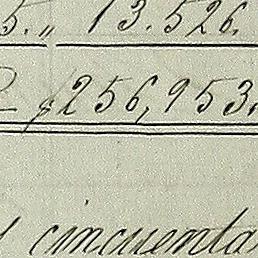 5. „ 13.526.
$256,953.
cincuenta